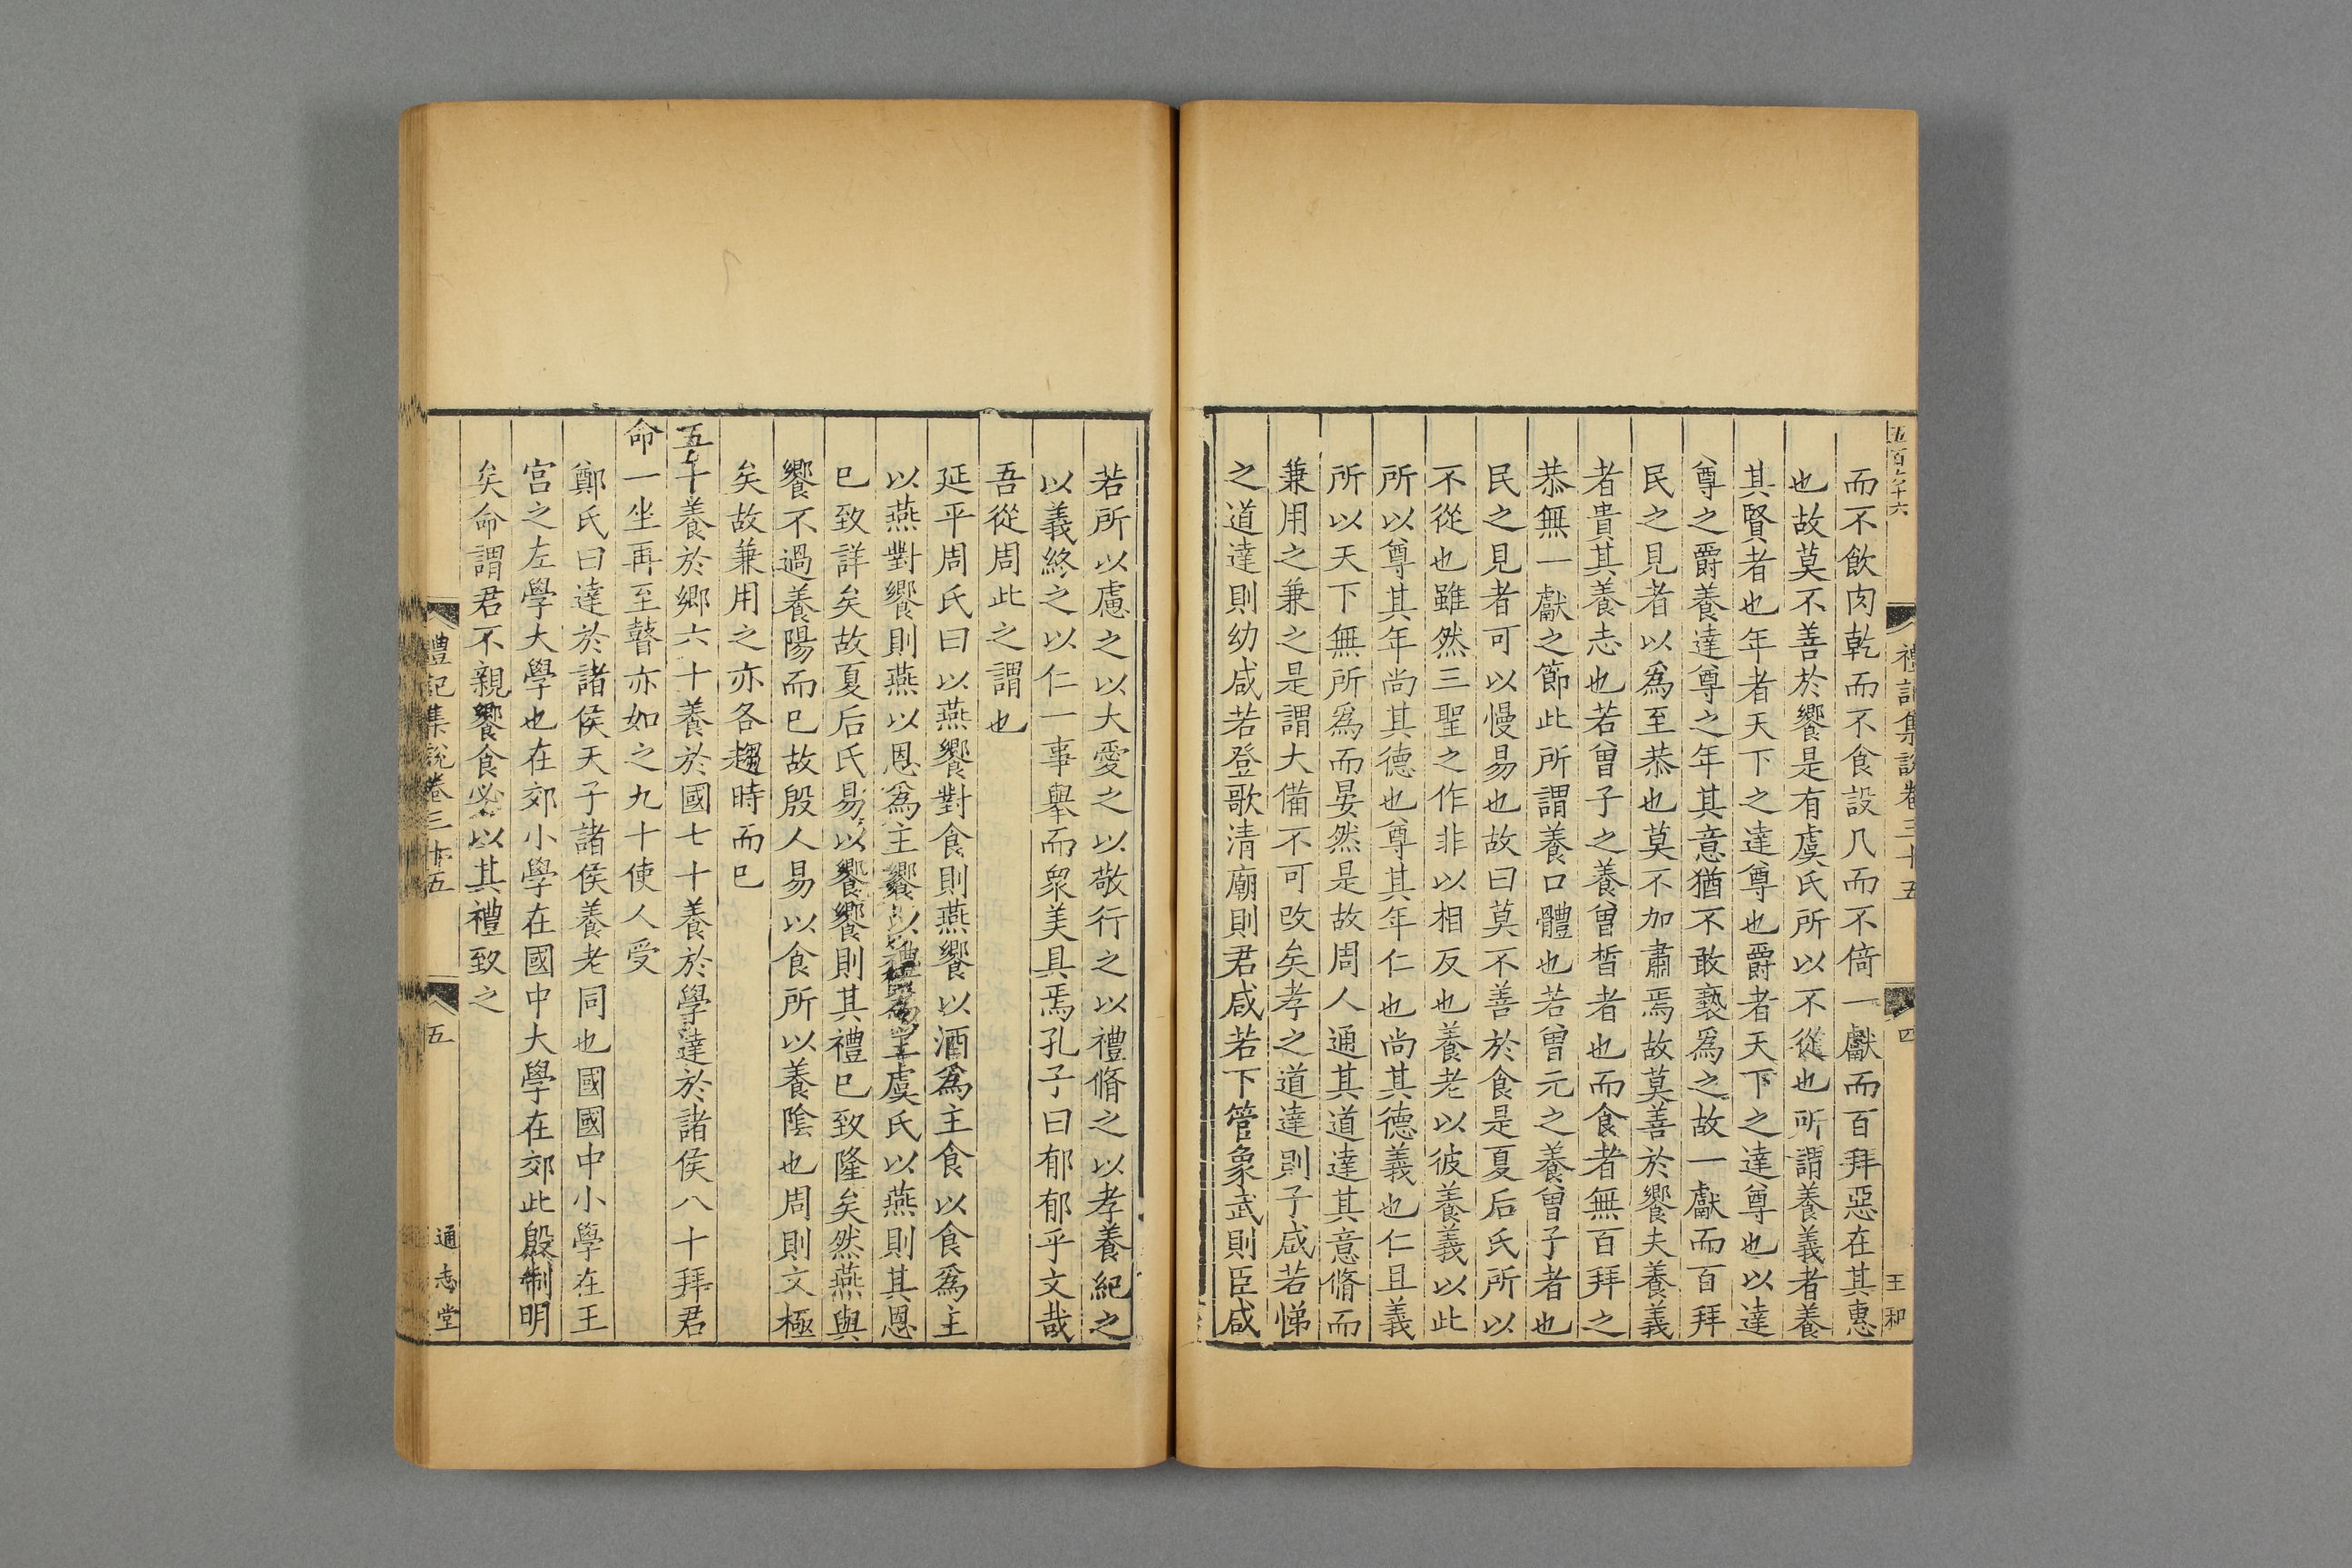 五百六十六
禮記集說卷三十五
四
王和
而不飲肉乾而不食設几而不倚一獻而百拜惡在其惠
也故莫不善於饗是有虞氏所以不從也所謂養義者養
其賢者也年者天下之達尊也爵者天下之達尊也以達
尊之爵養達尊之年其意猶不敢褻爲之故一獻而百拜
民之見者以爲至恭也莫不加肅焉故莫善於饗夫養義
者貴其養志也若曾子之養曾晳者也而食者無百拜之
恭無一獻之節此所謂養口體也若曾元之養曾子者也
民之見者可以慢易也故曰莫不善於食是夏后氏所以
不從也雖然三聖之作非以相反也養老以彼養義以此
所以尊其年尚其德也尊其年仁也尚其德義也仁且義
所以天下無所爲而晏然是故周人通其道達其意脩而
兼用之兼之是謂大備不可改矣孝之道達則子咸若悌
之道達則幼咸若登歌清廟則君咸若下管象武則臣咸
若所以慮之以大愛之以敬行之以禮脩之以孝養紀之
以義終之以仁一事舉而衆美具焉孔子曰郁郁乎文哉
吾從周此之謂也
延平周氏曰以燕饗對食則燕饗以酒爲主食以食爲主
以燕對饗則燕以恩爲主饗以禮爲主虞氏以燕則其恩
已致詳矣故夏后氏易以饗饗則其禮已致隆矣然燕與
饗不過養陽而已故殷人易以食所以養陰也周則文極
矣故兼用之亦各趨時而已
五十養於鄉六十養於國七十養於學達於諸侯八十拜君
命一坐再至瞽亦如之九十使人受
鄭氏曰達於諸侯天子諸侯養老同也國國中小學在王
宮之左學大學也在郊小學在國中大學在郊此殷制明
矣命謂君不親饗食必以其禮致之
禮記集說卷三十五
五
通志堂